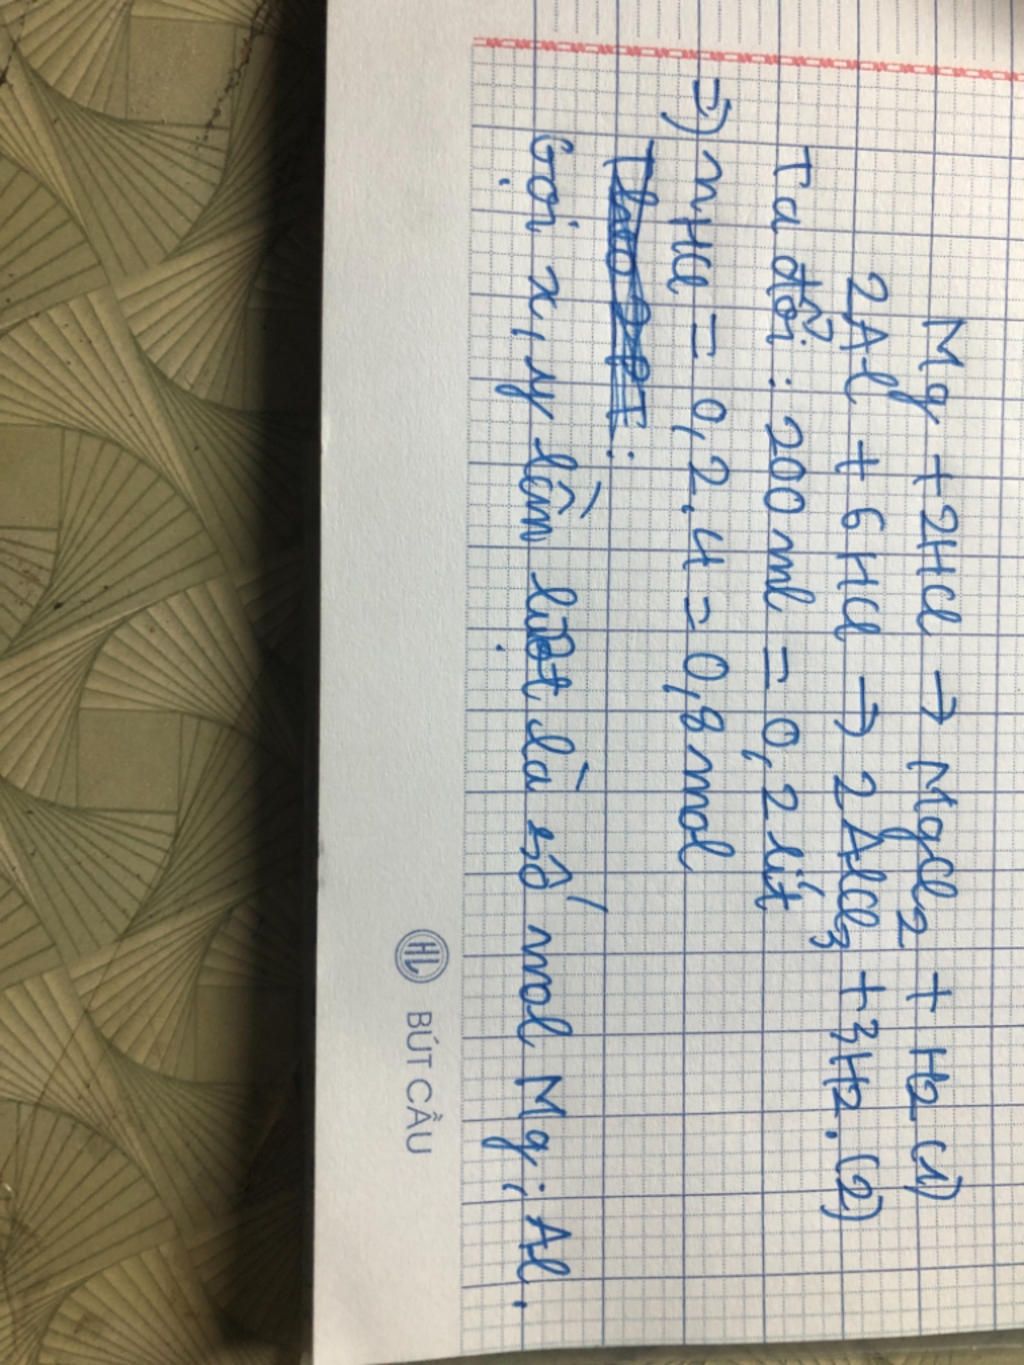 Mg + 2HCl → MgCl2 + H2 (1)
2Al + 6HCl → 2AlCl3 + 3H2. (2)
Ta đổi : 200ml = 0,2 lít
=) nHCl = 0,2.4 = 0,8 mol
Theo 2PT :
Gọi x, y lần lượt là số mol Mg ; Al .
HL BÚT CẦU